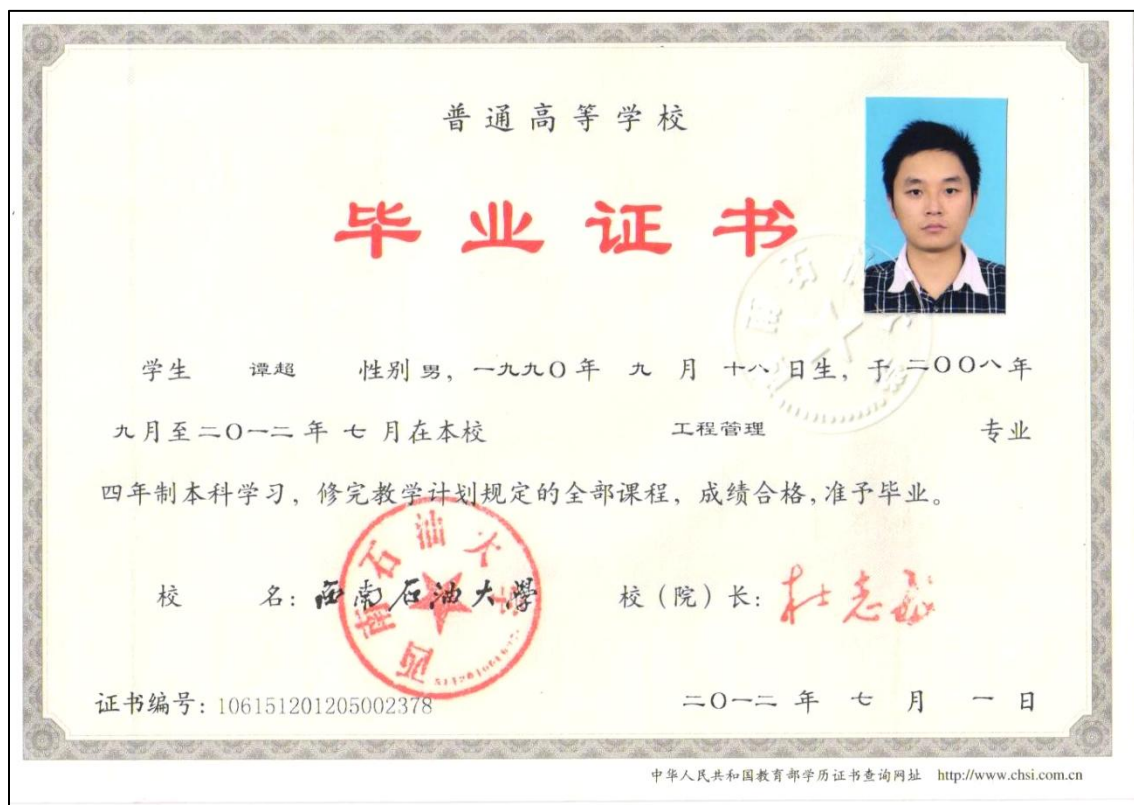 普通高等学校
毕业证书
学生 谭超 性别 男，一九九〇年 九 月 十八 日生，于 二〇〇八年
九月至二〇一二 年 七 月在本校 工程管理 专业
四年制本科学习，修完教学计划规定的全部课程，成绩合格，准予毕业。
校 名：西南石油大學 校（院）长：杜志敏
西南石油大学
证书编号：106151201205002378 二〇一二 年 七 月 一 日
中华人民共和国教育部学历证书查询网址 http://www.chsi.com.cn